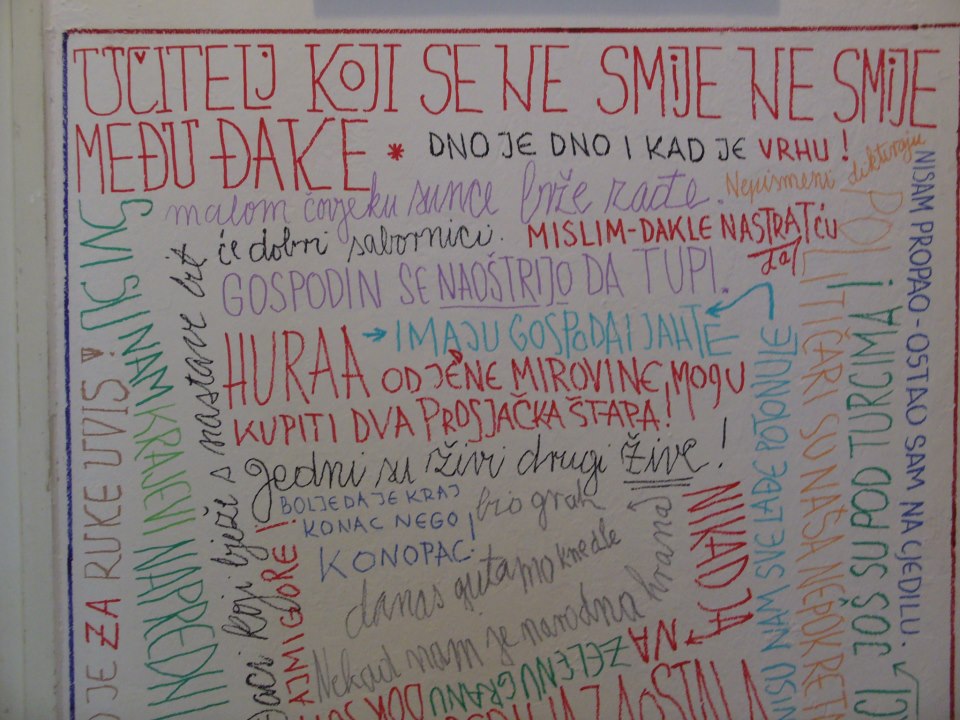 UČITELJ KOJI SE NE SMIJE NE SMIJE
MEĐU ĐAKE * DNO JE DNO I KAD JE VRHU !
malom čovjeku sunce brže zađe.
Nepismeni diktiraju
će dobri sabornici.
MISLIM-DAKLE NASTRATĆU
da!
GOSPODIN SE NAOŠTRIJO DA TUPI.
IMAJU GOSPODA I JAHTE
HURAA OD JEDNE MIROVINE, MOGU
KUPITI DVA PROSJAČKA ŠTAPA!
Jedni su živi drugi žive!
BOLJE DA JE KRAJ
KONAC NEGO
KONOPAC!
bio grah
danas gutamo knedle
Nekad nam je narodna hrana
NIKAD JA
NA
ZELENU GRANU
ZAOSTALA
JE ZA RUKE UVIS!
SVI SU NAM KRAJEVI NAPREDNI
đaci koji bježe s nastave bit
NAM SVE LAĐE POTONULE
POLITIČARI SU NAŠA NEPOKRET
JOŠ SU POD TURCIMA!
NISAM PROPAO-OSTAO SAM NA CJEDILU.